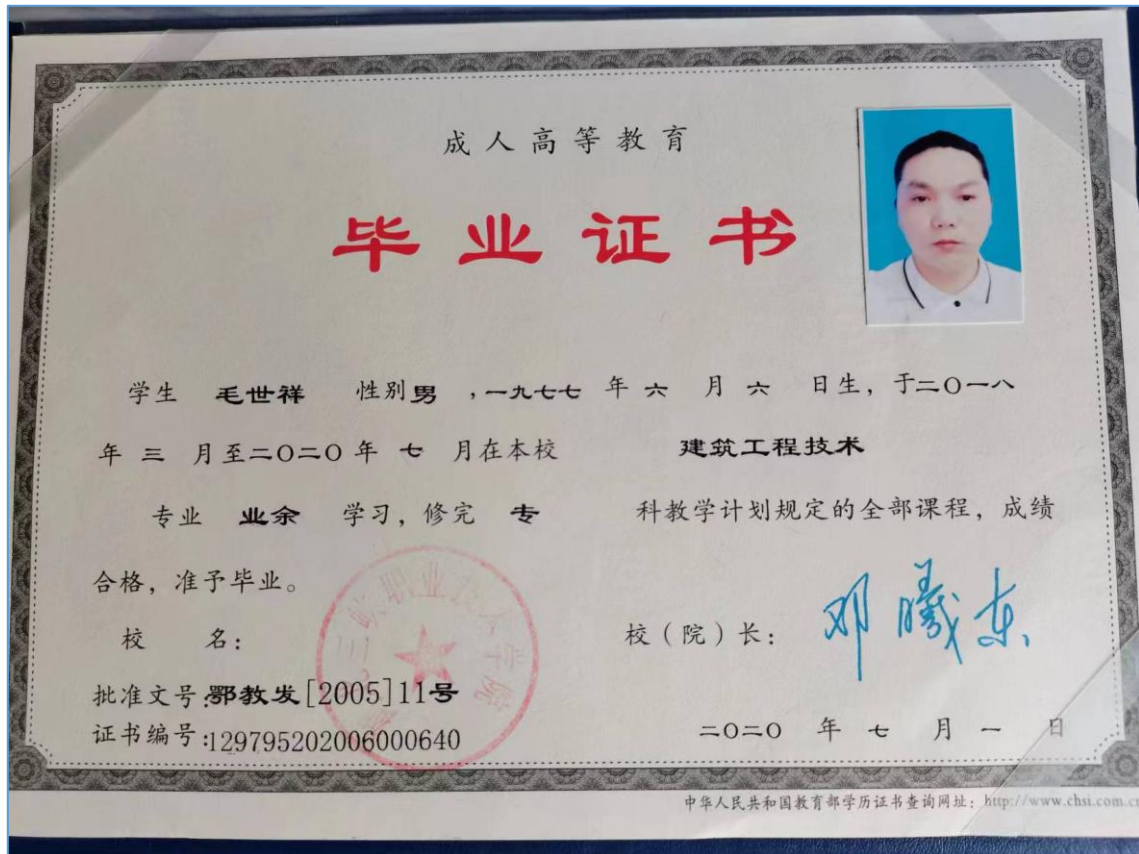 成人高等教育
毕业证书
学生 毛世祥 性别男 ,一九七七 年 六 月 六 日生, 于二〇一八
年 三 月至二〇二〇年 七 月在本校 建筑工程技术
专业 业余 学习, 修完 专 科教学计划规定的全部课程, 成绩
合格, 准予毕业。
校 名: 三峡职业技术学院
校(院)长: 邓曦东
批准文号:鄂教发[2005]11号
证书编号:129795202006000640
二〇二〇 年 七 月 一 日
中华人民共和国教育部学历证书查询网址: http://www.chsi.com.cn